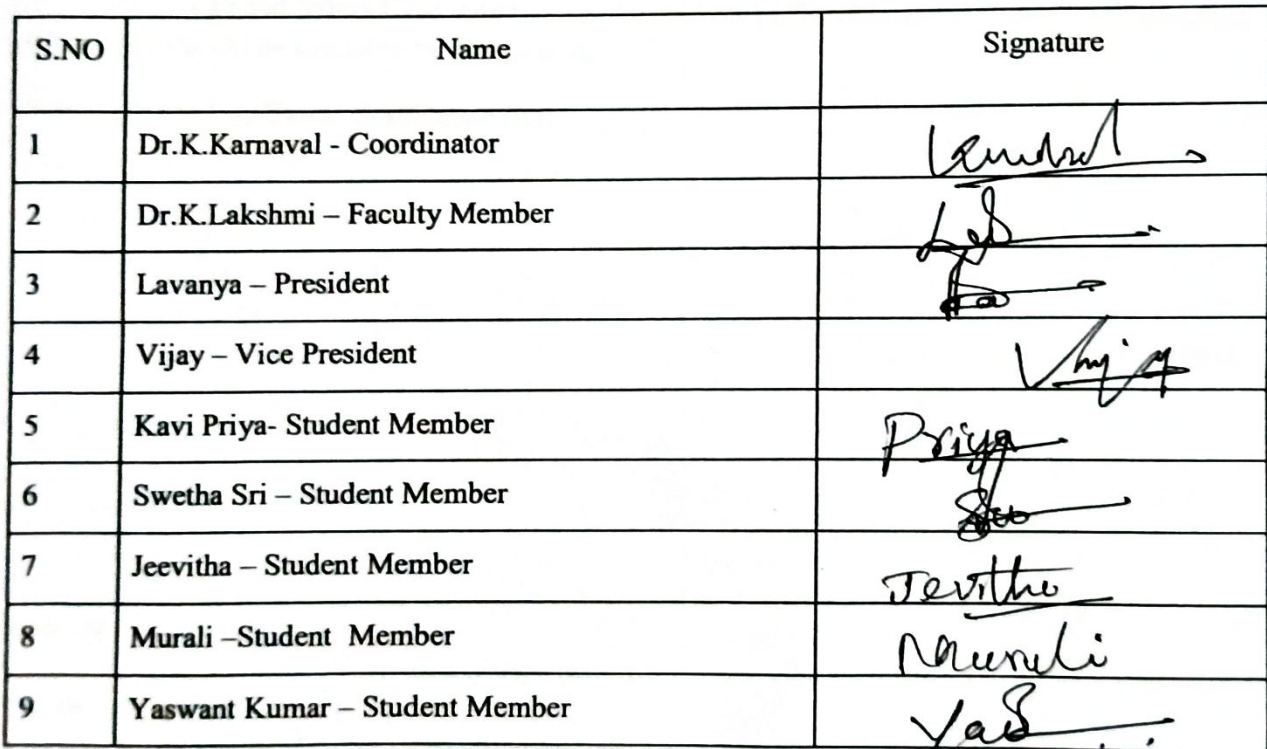 S.NO Name Signature
1 Dr.K.Karnaval - Coordinator
2 Dr.K.Lakshmi – Faculty Member
3 Lavanya – President
4 Vijay – Vice President Vijay
5 Kavi Priya- Student Member Priya
6 Swetha Sri – Student Member
7 Jeevitha – Student Member Jevitha
8 Murali –Student Member Murali
9 Yaswant Kumar – Student Member